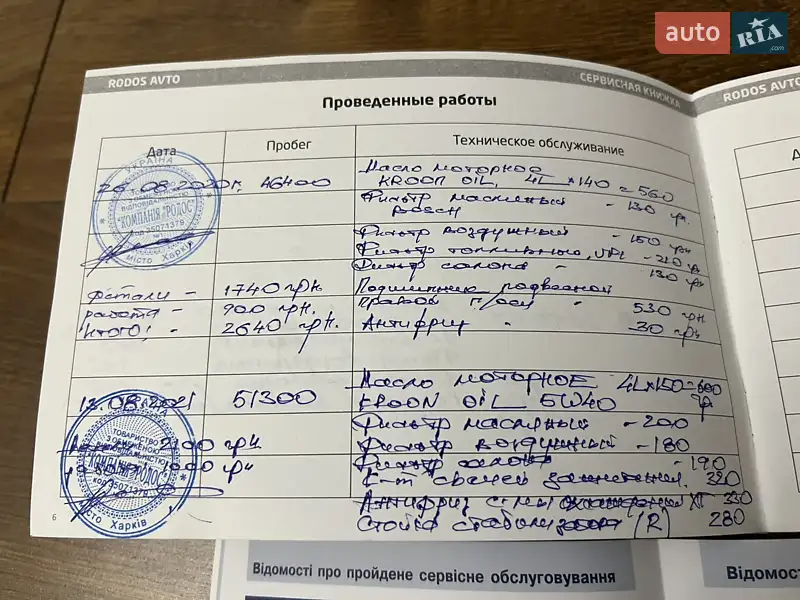 auto RIA.com
RODOS AVTO
СЕРВИСНАЯ КНИЖКА
RODOS AVTO
Проведенные работы
Дата Пробег Техническое обслуживание
26.08.2020г. 46400 Масло моторное
KROON OIL, 4L×140=560
Фильтр масляный - 130 гр.
BOSCH
Фильтр воздушный - 150 грн
Фильтр топливный, - 210
Фильтр салона - 130 гр.
Детали - 1740 грн. Подшипник подвесной
работа - 900 грн. правой 530 грн
Итого: - 2640 грн. Антифриз - 30 грн
13.08.2021 51300 Масло моторное 4L×150=600
KROON OIL 5W40 гр
Фильтр масляный - 200
2100 грн Фильтр воздушный - 180
1000 грн Фильтр салона - 190
К-т свечей зажигания 320
Антифриз 330
Стойка стабилизат (R) 280
УКРАЇНА
"КОМПАНІЯ "РОДОС"
код 35071379
місто Харків
ТОВАРИСТВО
З ОБМЕЖЕНОЮ
код 35071379
місто Харків
6
Відомості про пройдене сервісне обслуговування